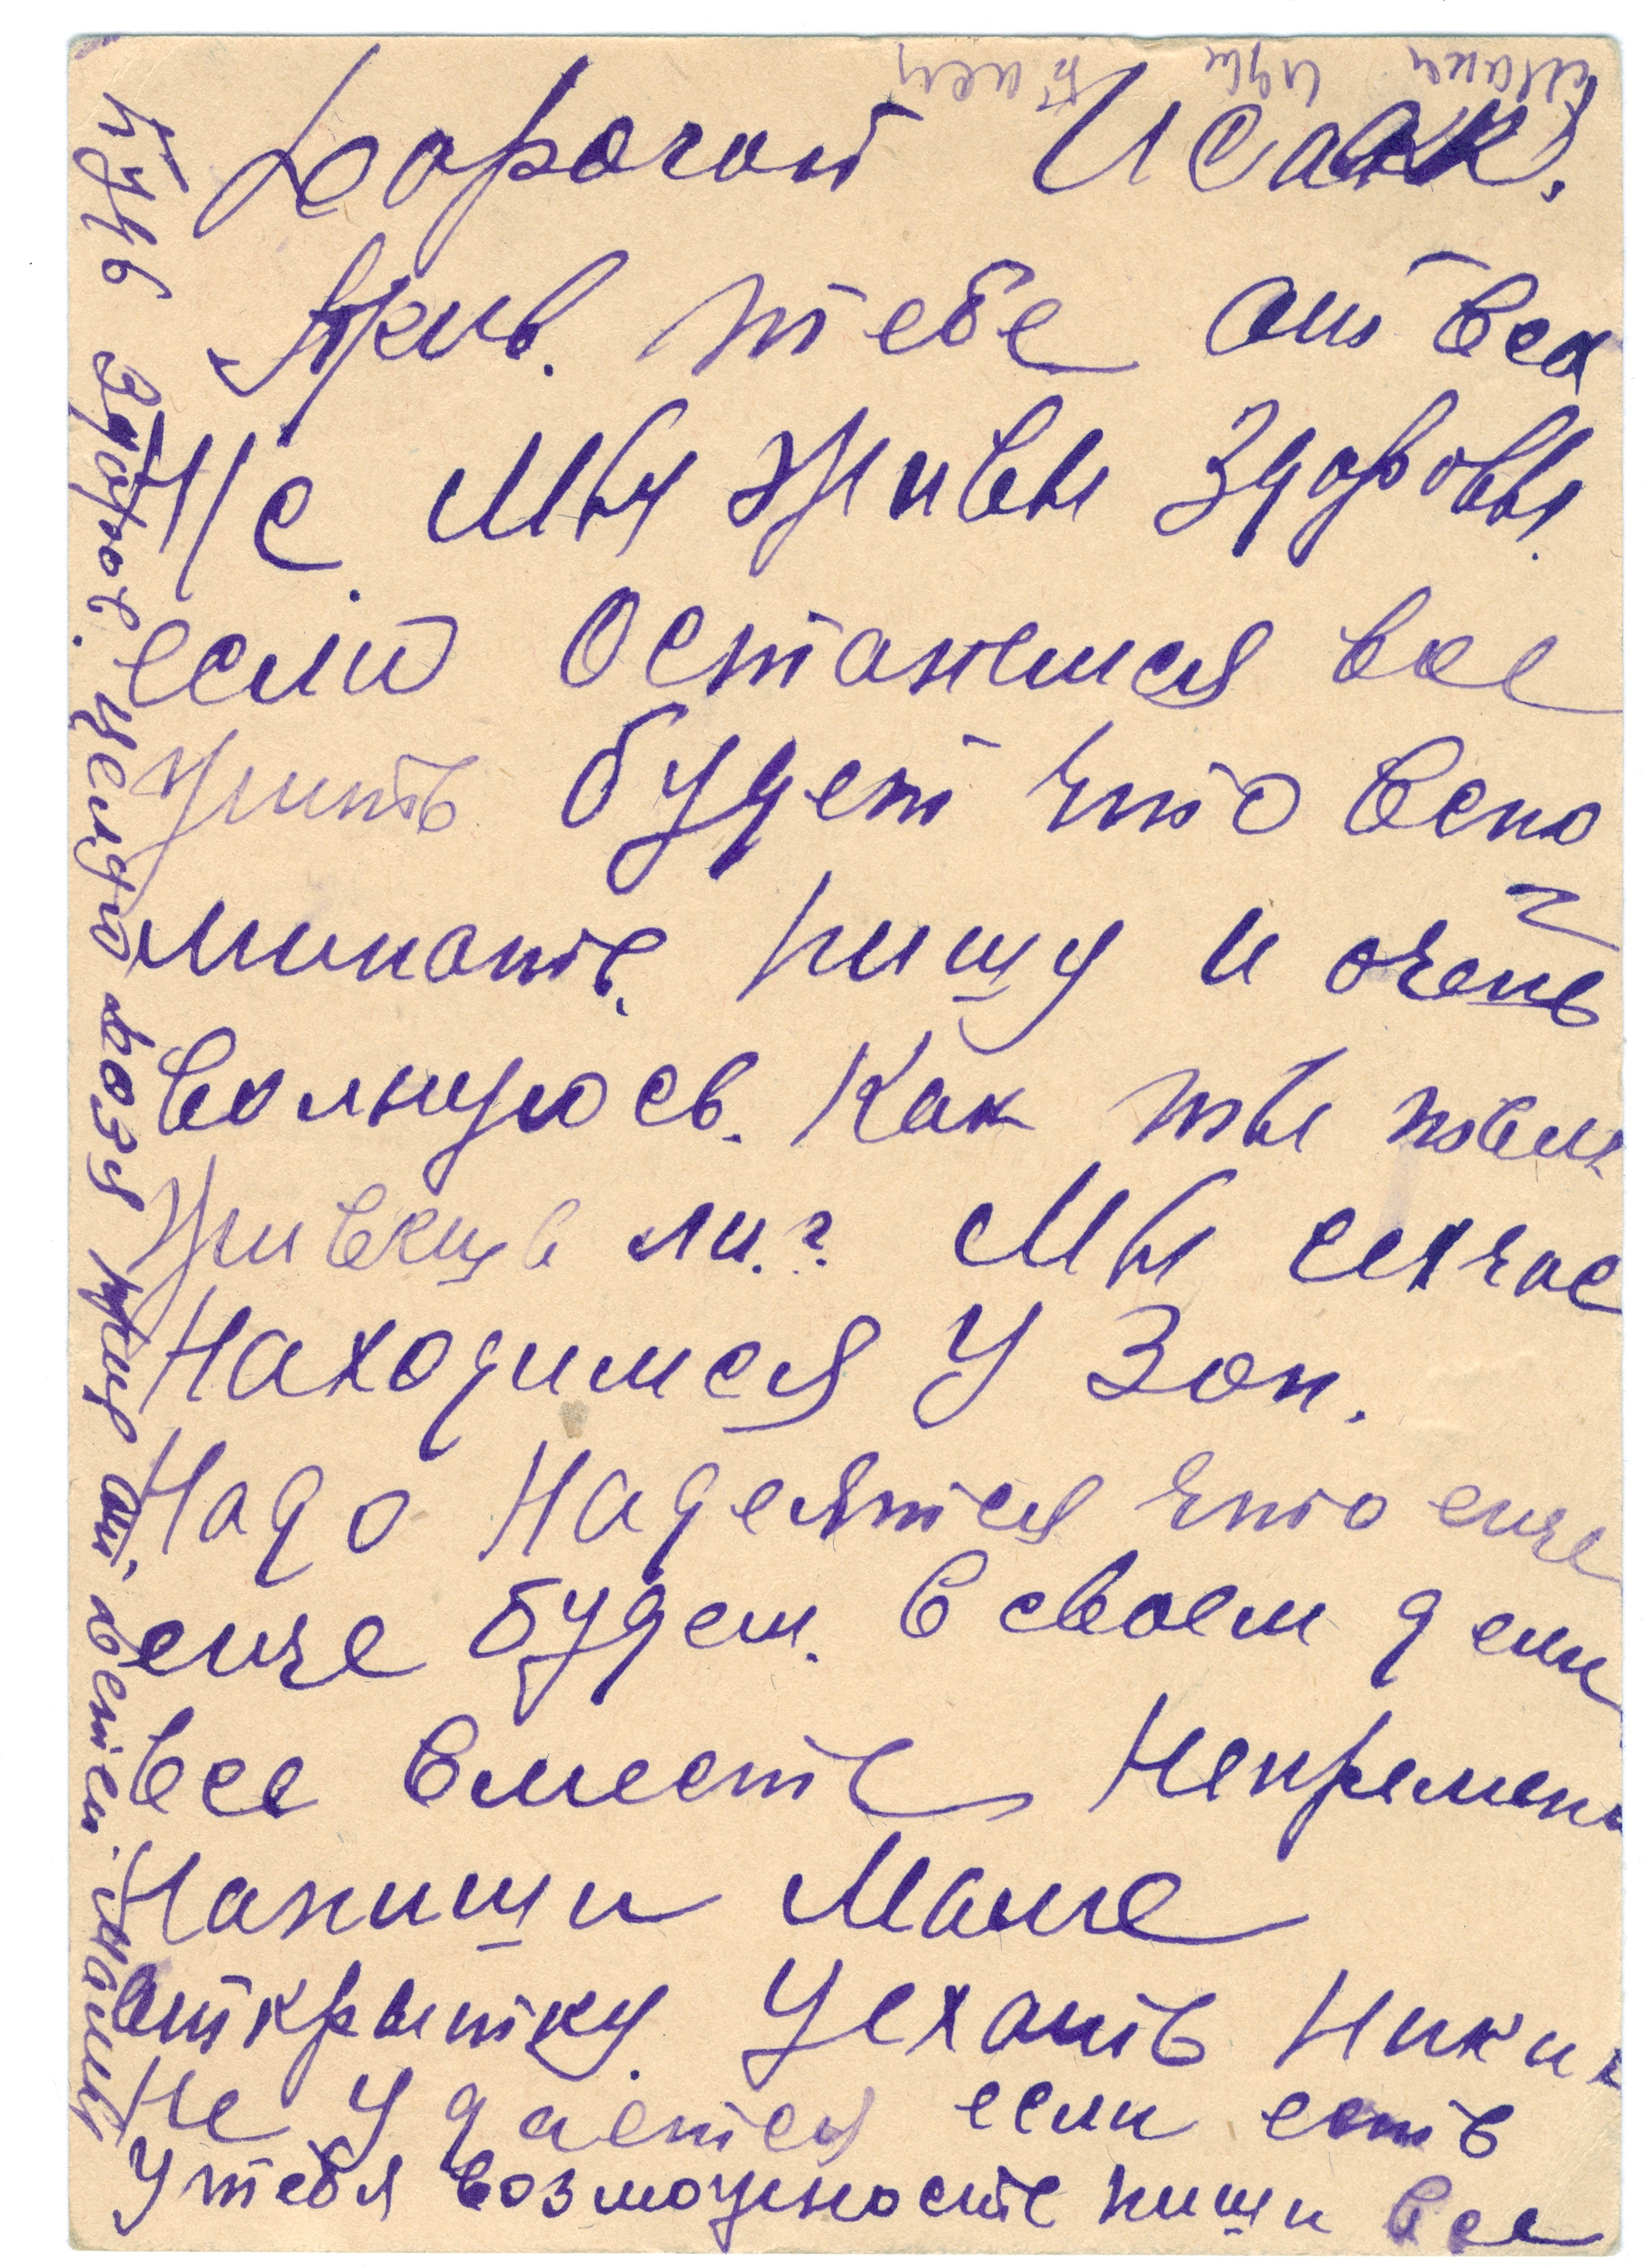 Дорогой Исаак.
Прив. тебе от всех
Н/с Мы живы здоровы.
если Останемся все
жить будет что вспо
минать. пишу и очень
волнуюсь. Как ты
живещь ли.? Мы сичас
Находимся У Зон.
Надо Надеятся что еще
еще будем. в своем
все вместе Непремен
Напиши Маме
открытку. Уехать
Не Удается если есть
У тебя возможность пиши все
будь здоров. целую
от детей.